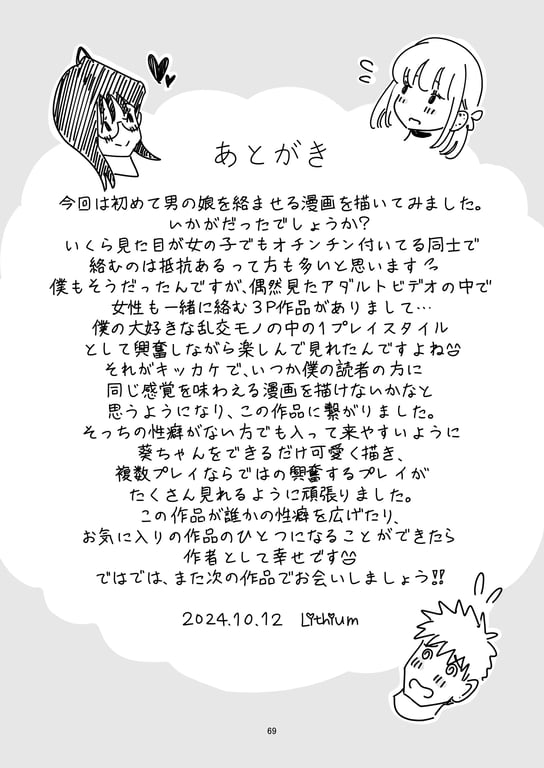 あとがき
今回は初めて男の娘を絡ませる漫画を描いてみました。
いかがだったでしょうか?
いくら見た目が女の子でもオチンチン付いてる同士で
絡むのは抵抗あるって方も多いと思います
僕もそうだったんですが、偶然見たアダルトビデオの中で
女性も一緒に絡む3P作品がありまして…
僕の大好きな乱交モノの中の1プレイスタイル
として興奮しながら楽しんで見れたんですよね
それがキッカケで、いつか僕の読者の方に
同じ感覚を味わえる漫画を描けないかなと
思うようになり、この作品に繋がりました。
そっちの性癖がない方でも入って来やすいように
葵ちゃんをできるだけ可愛く描き、
複数プレイならではの興奮するプレイが
たくさん見れるように頑張りました。
この作品が誰かの性癖を広げたり、
お気に入りの作品のひとつになることができたら
作者として幸せです
ではでは、また次の作品でお会いしましょう!!
2024.10.12 Lithium
69